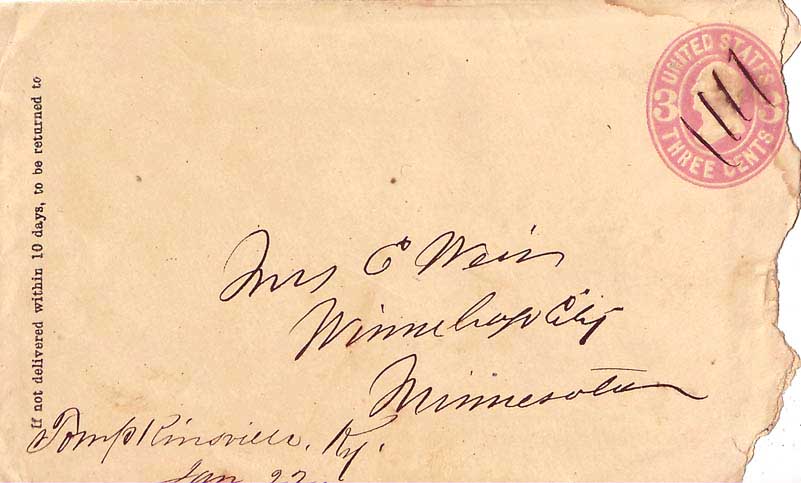 If not delivered within 10 days, to be returned to
UNITED STATES
3 3
THREE CENTS
Mrs C Weir
Winnebago City
Minnesota
Tompkinsville, Ky.
Jan 22